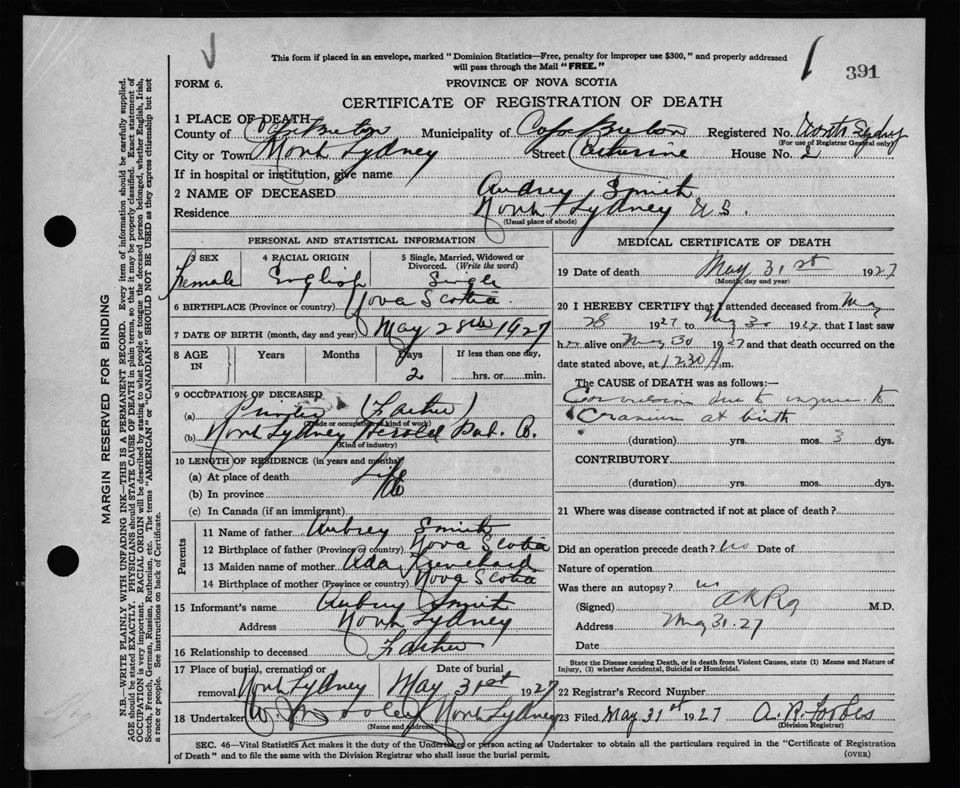 This form if placed in an envelope, marked "Dominion Statistics—Free, penalty for improper use $300," and properly addressed
will pass through the Mail "FREE."
391
FORM 6.
PROVINCE OF NOVA SCOTIA
CERTIFICATE OF REGISTRATION OF DEATH
1 PLACE OF DEATH
County of Cape Breton Municipality of Cape Breton Registered No. North Sydney
(For use of Registrar General only)
City or Town North Sydney Street Catherine House No. 2
If in hospital or institution, give name
2 NAME OF DECEASED Audrey Smith
Residence North Sydney N.S.
(Usual place of abode)
PERSONAL AND STATISTICAL INFORMATION
3 SEX 4 RACIAL ORIGIN 5 Single, Married, Widowed or Divorced. (Write the word)
Female English Single
6 BIRTHPLACE (Province or country) Nova Scotia
7 DATE OF BIRTH (month, day and year) May 28th 1927
8 AGE IN Years Months Days If less than one day,
2 hrs. or min.
9 OCCUPATION OF DECEASED
(a) Printer (Father)
(Trade or occupation, kind of work)
(b) North Sydney Herald Pub. Co.
(Kind of industry)
10 LENGTH OF RESIDENCE (in years and months)
(a) At place of death Life
(b) In province do
(c) In Canada (if an immigrant)
Parents
11 Name of father Aubrey Smith
12 Birthplace of father (Province or country) Nova Scotia
13 Maiden name of mother Ada
14 Birthplace of mother (Province or country) Nova Scotia
15 Informant's name Aubrey Smith
Address North Sydney
16 Relationship to deceased Father
17 Place of burial, cremation or removal Date of burial
North Sydney May 31st 1927
18 Undertaker North Sydney
(Name and address)
MEDICAL CERTIFICATE OF DEATH
19 Date of death May 31st 1927
(Month, day and year)
20 I HEREBY CERTIFY that I attended deceased from May
28 1927 to May 30 1927 that I last saw
her alive on May 30 1927 and that death occurred on the
date stated above, at 12.30 A m.
The CAUSE of DEATH was as follows:
Convulsion due to injury to
Cranium at birth
(duration) yrs. mos. 3 dys.
CONTRIBUTORY
(duration) yrs. mos. dys.
21 Where was disease contracted if not at place of death?
Did an operation precede death? no Date of
Nature of operation
Was there an autopsy? no
(Signed) M.D.
Address May 31.27
Date
State the Disease causing Death, or in death from Violent Causes, state (1) Means and Nature of
Injury, (2) whether Accidental, Suicidal or Homicidal.
22 Registrar's Record Number
23 Filed May 31st 1927 A. R. Forbes
(Division Registrar)
SEC. 46—Vital Statistics Act makes it the duty of the Undertaker or person acting as Undertaker to obtain all the particulars required in the "Certificate of Registration
of Death" and to file the same with the Division Registrar who shall issue the burial permit. (OVER)
MARGIN RESERVED FOR BINDING
N.B.—WRITE PLAINLY WITH UNFADING INK—THIS IS A PERMANENT RECORD. Every item of information should be carefully supplied.
AGE should be stated EXACTLY. PHYSICIANS should STATE CAUSE OF DEATH in plain terms, so that it may be properly classified. Exact statement of
OCCUPATION is very important. RACIAL ORIGIN will be described by stating to what people or tongue the deceased person belonged, whether English, Irish,
Scotch, French, German, Russian, Ruthenian, etc. The terms "AMERICAN" or "CANADIAN" SHOULD NOT BE USED as they express citizenship but not
a race or people. See instructions on back of Certificate.